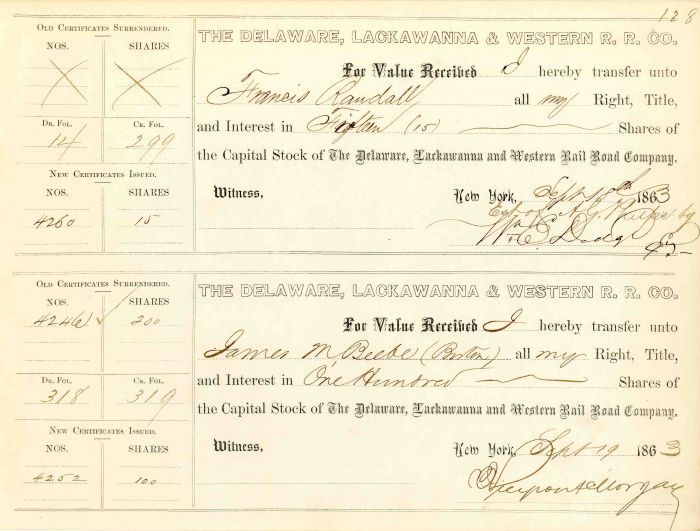 128
OLD CERTIFICATES SURRENDERED.
NOS. SHARES
DR. FOL. CR. FOL.
14 299
NEW CERTIFICATES ISSUED.
NOS. SHARES
4260 15
THE DELAWARE, LACKAWANNA & WESTERN R. R. CO.
For Value Received I hereby transfer unto
Francis Randall all my Right, Title,
and Interest in Fifteen (15) Shares of
the Capital Stock of The Delaware, Lackawanna and Western Rail Road Company.
Witness, New York, Sept 1863
A. G. Phelps by
Wm. E. Dodge
OLD CERTIFICATES SURRENDERED.
NOS. SHARES
200
DR. FOL. CR. FOL.
318 319
NEW CERTIFICATES ISSUED.
NOS. SHARES
4252 100
THE DELAWARE, LACKAWANNA & WESTERN R. R. CO.
For Value Received I hereby transfer unto
James M Beebe (Boston) all my Right, Title,
and Interest in One Hundred Shares of
the Capital Stock of The Delaware, Lackawanna and Western Rail Road Company.
Witness, New York, Sept 19 1863